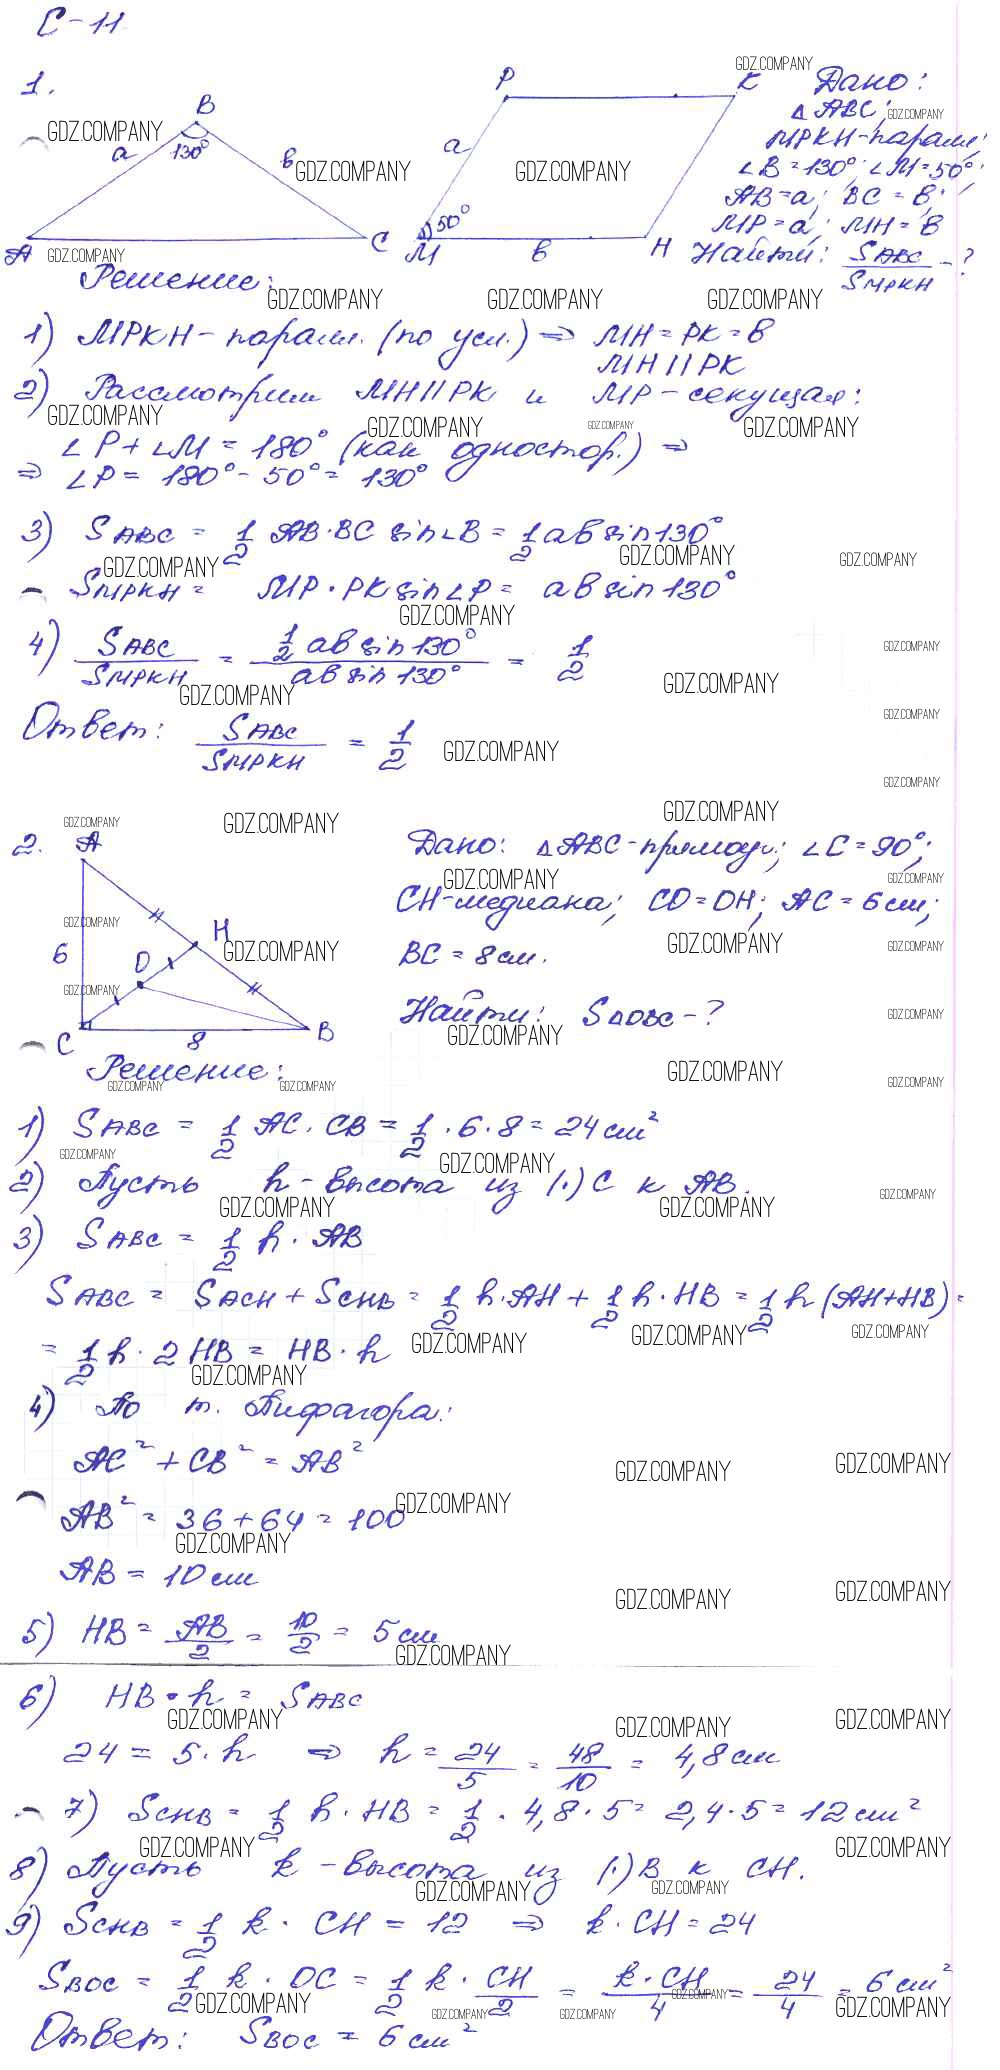 С-11
1.
B
a
130°
в
A
C
P
K
a
50°
M
в
H
Дано:
△ABC;
MPKH-паралл;
∠B=130°; ∠M=50°;
AB=a; BC=в;
MP=a; MH=в
Найти: SABC/SMPKH - ?
Решение:
1) MPKH - паралл. (по усл.) => MH=PK=в
MH||PK
2) Рассмотрим MH||PK и MP-секущая:
∠P+∠M=180° (как одностор.) =>
=> ∠P=180°-50°=130°
3) SABC = 1/2 AB·BC sin∠B = 1/2 aв sin130°
SMPKH = MP·PK sin∠P = aв sin130°
4) SABC/SMPKH = 1/2 aв sin130°/aв sin130° = 1/2
Ответ: SABC/SMPKH = 1/2
2.
A
H
6
O
C
8
B
Дано: △ABC-прямоуг; ∠C=90°;
CH-медиана; CO=OH; AC=6см;
BC=8см.
Найти: S△OBC-?
Решение:
1) SABC = 1/2 AC·CB = 1/2·6·8=24см²
2) Пусть h-высота из (·) C к AB.
3) SABC = 1/2 h·AB
SABC = SACH + SCHB = 1/2 h·AH + 1/2 h·HB = 1/2 h(AH+HB) =
= 1/2 h·2HB = HB·h
4) По т. Пифагора:
AC²+CB²=AB²
AB²=36+64=100
AB=10см
5) HB = AB/2 = 10/2 = 5см
6) HB·h = SABC
24=5·h => h = 24/5 = 48/10 = 4,8см
7) SCHB = 1/2 h·HB = 1/2·4,8·5=2,4·5=12см²
8) Пусть k-высота из (·) B к CH.
9) SCHB = 1/2 k·CH = 12 => k·CH=24
SBOC = 1/2 k·OC = 1/2 k·CH/2 = k·CH/4 = 24/4 = 6см²
Ответ: SBOC = 6см²
GDZ.COMPANY